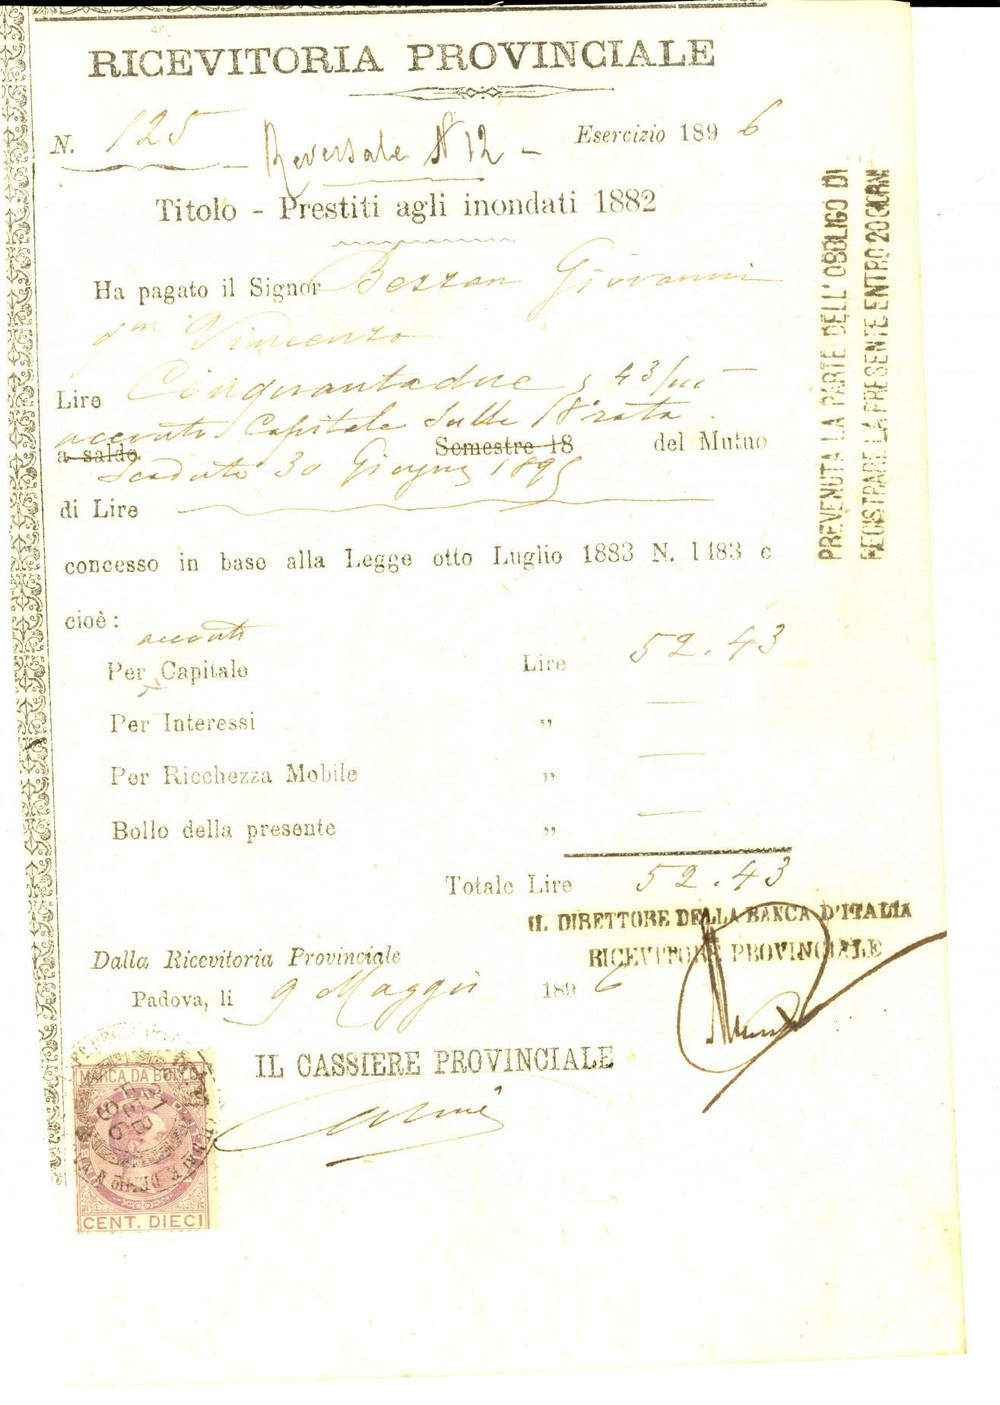 RICEVITORIA PROVINCIALE
N. 125 Reversale N 12 - Esercizio 1896
Titolo - Prestiti agli inondati 1882
Ha pagato il Signor Bezzan Giovanni
qm Vincenzo
Lire Cinquantadue 43/
acconto Capitale sulla 18 rata
a saldo Semestre 18 del Mutuo
scaduto 30 Giugno 1895
di Lire
concesso in base alla Legge otto Luglio 1883 N. 1483 e
cioè:
acconto
Per Capitale Lire 52.43
Per Interessi „ —
Per Ricchezza Mobile „ —
Bollo della presente „ —
Totale Lire 52.43
IL DIRETTORE DELLA BANCA D'ITALIA
RICEVITORE PROVINCIALE
Dalla Ricevitoria Provinciale
Padova, li 9 Maggio 1896
IL CASSIERE PROVINCIALE
MARCA DA BOLLO
CENT. DIECI
PREVENUTA LA PARTE DELL'OBBLIGO DI
REGISTRARE LA PRESENTE ENTRO 20 GIORNI